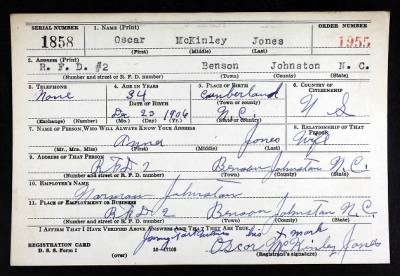 SERIAL NUMBER 1. NAME (Print) ORDER NUMBER
1858 Oscar McKinley Jones 1955
(First) (Middle) (Last)
2. ADDRESS (Print)
R. F. D. #2 Benson Johnston N. C.
(Number and street or R. F. D. number) (Town) (County) (State)
3. TELEPHONE 4. AGE IN YEARS 5. PLACE OF BIRTH 6. COUNTRY OF CITIZENSHIP
None 34 Cumberland
DATE OF BIRTH
Dec 23 1906 N. C. U S
(Exchange) (Number) (Mo.) (Day) (Yr.) (State or country)
7. NAME OF PERSON WHO WILL ALWAYS KNOW YOUR ADDRESS 8. RELATIONSHIP OF THAT PERSON
Anna Jones Wife
(Mr., Mrs., Miss) (First) (Middle) (Last)
9. ADDRESS OF THAT PERSON
RFD 2 Benson Johnston N. C.
(Number and street or R. F. D. number) (Town) (County) (State)
10. EMPLOYER'S NAME
Norman Johnston
11. PLACE OF EMPLOYMENT OR BUSINESS
RFD 2 Benson Johnston N. C.
(Number and street or R. F. D. number) (Town) (County) (State)
I AFFIRM THAT I HAVE VERIFIED ABOVE ANSWERS AND THAT THEY ARE TRUE.
his x mark
REGISTRATION CARD
D. S. S. Form 1 Oscar McKinley Jones
(Registrant's signature)